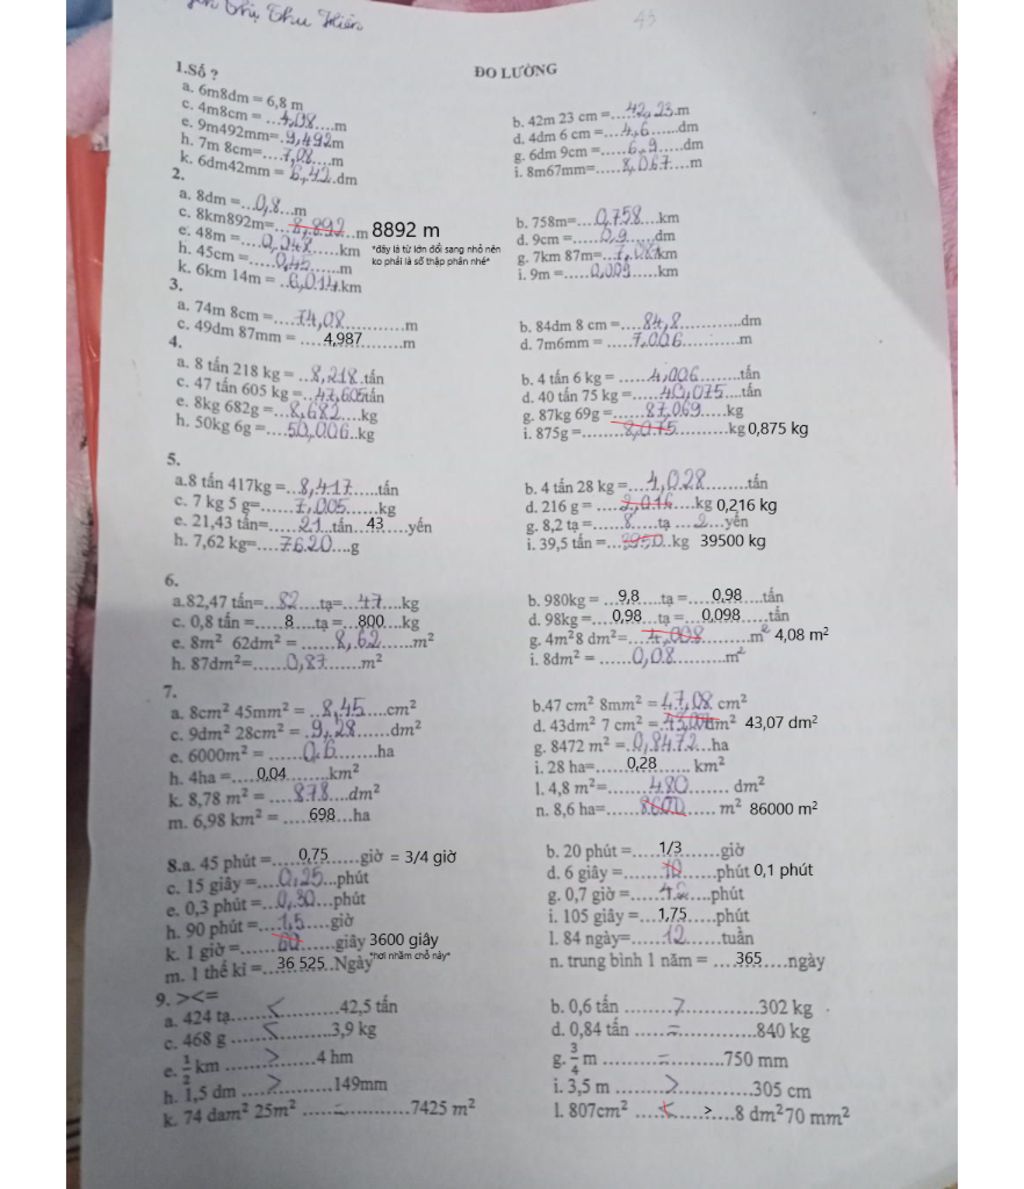 Thị Thu Hiền
45
ĐO LƯỜNG
1.Số ?
a. 6m8dm = 6,8 m
b. 42m 23 cm =....42,23.m
c. 4m8cm = ...4,08....m
d. 4dm 6 cm =....4,6......dm
e. 9m492mm=.9,492m
g. 6dm 9cm =.....6,9.....dm
h. 7m 8cm=....7,08....m
i. 8m67mm=.....8,067....m
k. 6dm42mm = 6,42.dm
2.
a. 8dm =...0,8...m
b. 758m=....0,758....km
c. 8km892m=...8,892...m 8892 m
d. 9cm =.....0,9....dm
*đây là từ lớn đổi sang nhỏ nên
ko phải là số thập phân nhé*
e. 48m =....0,048.....km
g. 7km 87m=...7,087km
h. 45cm =.....0,45.....m
i. 9m =.....0,009.....km
k. 6km 14m = ..6,014.km
3.
a. 74m 8cm =....74,08.............m
b. 84dm 8 cm =....84,8.............dm
c. 49dm 87mm = ....4,987.........m
d. 7m6mm = .....7,006...........m
4.
a. 8 tấn 218 kg = ..8,218.tấn
b. 4 tấn 6 kg = ......4,006........tấn
c. 47 tấn 605 kg =..47,605tấn
d. 40 tấn 75 kg =.....40,075....tấn
e. 8kg 682g =...8,682....kg
g. 87kg 69g =......87,069.....kg
h. 50kg 6g =....50,006..kg
i. 875g =........8,075..........kg 0,875 kg
5.
a.8 tấn 417kg =..8,417.....tấn
b. 4 tấn 28 kg =...4,028.........tấn
c. 7 kg 5 g=......7,005......kg
d. 216 g = ....2,016....kg 0,216 kg
e. 21,43 tấn=.....21..tấn...43....yến
g. 8,2 tạ =......8.....tạ ....2...yến
h. 7,62 kg=....7620....g
i. 39,5 tấn =...3950..kg 39500 kg
6.
a.82,47 tấn=...82.....tạ=....47....kg
b. 980kg = ...9,8....tạ = .....0,98....tấn
c. 0,8 tấn =......8.....tạ =...800...kg
d. 98kg=....0,98....tạ =....0,098....tấn
e. 8m² 62dm² = ......8,62......m²
g. 4m²8 dm²=....4,008.........m² 4,08 m²
h. 87dm²=......0,87......m²
i. 8dm² = ......0,08..........m²
7.
a. 8cm² 45mm² = ..8,45....cm²
b.47 cm² 8mm² =47,08 cm²
c. 9dm² 28cm² = .9,28.......dm²
d. 43dm² 7 cm² =.43,007dm² 43,07 dm²
e. 6000m² = ......0,6.........ha
g. 8472 m² =.0,8472...ha
h. 4ha =....0,04.........km²
i. 28 ha=......0,28....... km²
k. 8,78 m² = .....878....dm²
l. 4,8 m²=.......480....... dm²
m. 6,98 km² = .....698...ha
n. 8,6 ha=......8600...... m² 86000 m²
8.a. 45 phút =.....0,75......giờ = 3/4 giờ
b. 20 phút =.....1/3.......giờ
c. 15 giây =....0,25...phút
d. 6 giây =.......10......phút 0,1 phút
e. 0,3 phút =...0,30....phút
g. 0,7 giờ =.....42....phút
h. 90 phút =....1,5....giờ
i. 105 giây =....1,75.....phút
k. 1 giờ =.......60.......giây 3600 giây
l. 84 ngày=......12.......tuần
m. 1 thế kỉ =...36 525..Ngày *hơi nhầm chỗ này*
n. trung bình 1 năm = ....365....ngày
9. ><=
a. 424 tạ.......<..........42,5 tấn
b. 0,6 tấn .........>...............302 kg
c. 468 g .......<.........3,9 kg
d. 0,84 tấn ......=..............840 kg
e. 1/2 km ........>.......4 hm
g. 3/4 m ..........=..........750 mm
h. 1,5 dm .....>.........149mm
i. 3,5 m .........>.............305 cm
k. 74 dam² 25m² ......=...........7425 m²
l. 807cm² .....<......>....8 dm²70 mm²